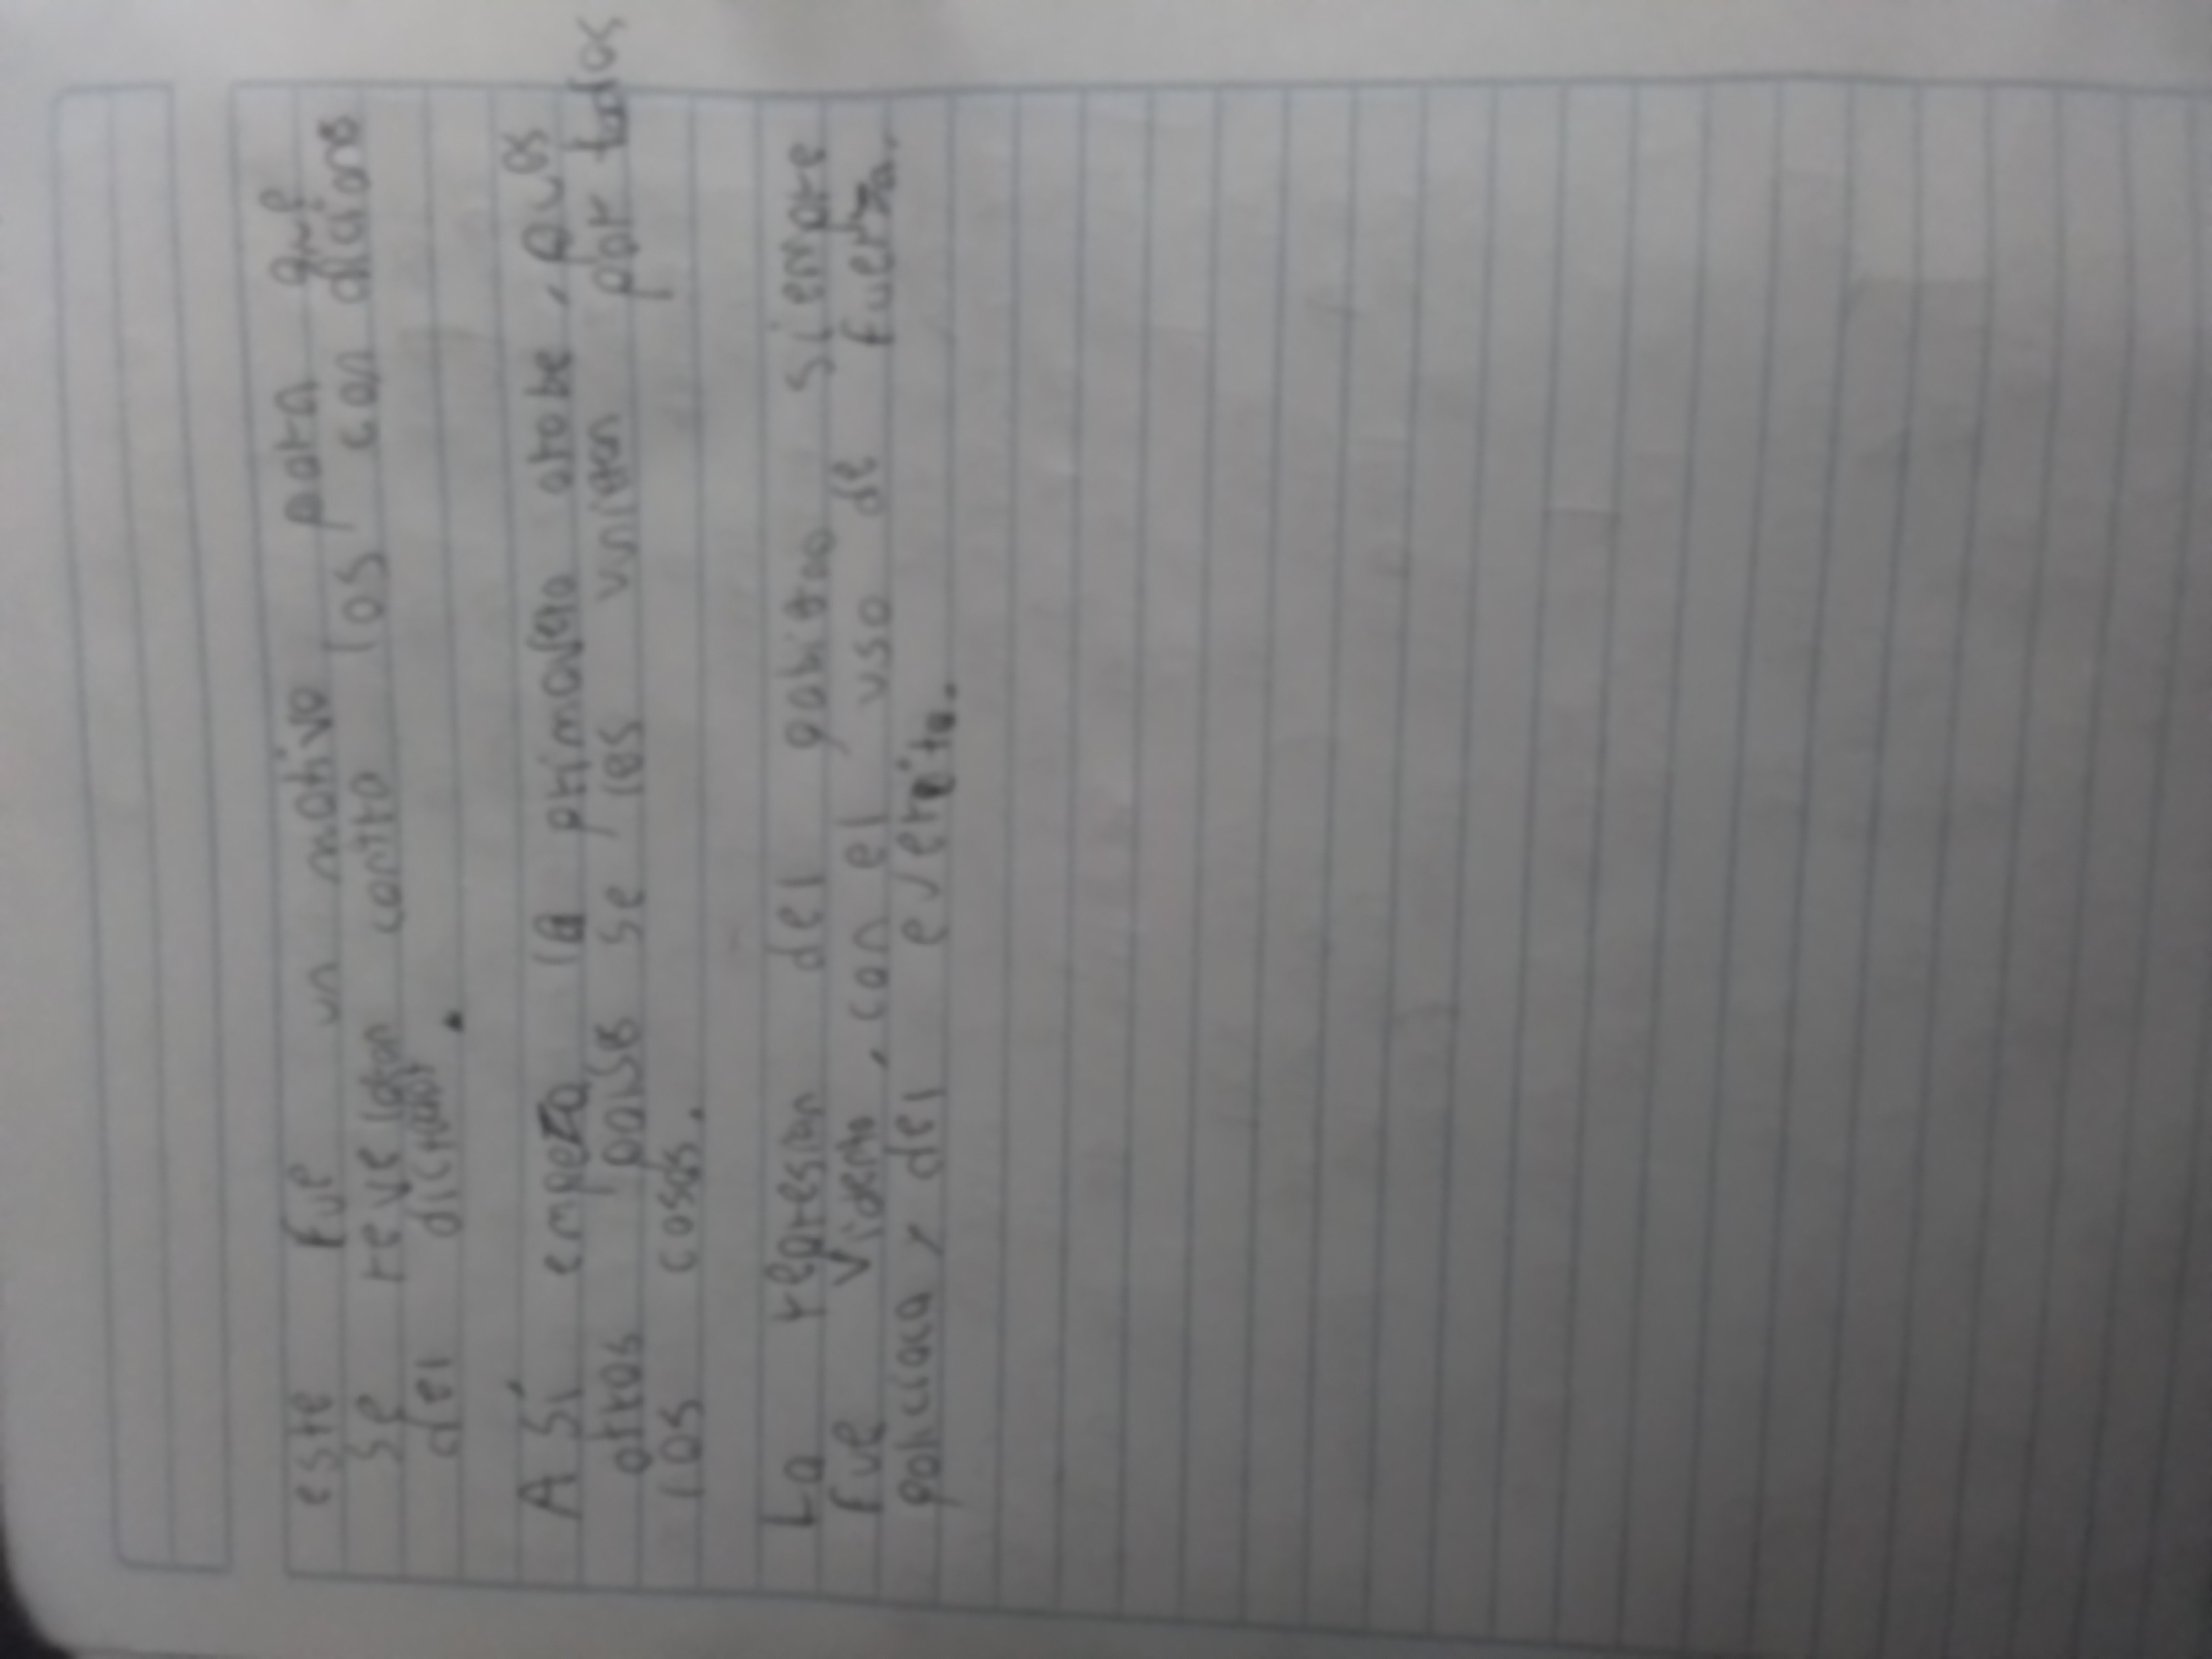 este fue un motivo para que
se revelaran contra los con diciones
del dictador.
A Sí empeza la primavera arabe, pues
otros paises se les unieron por todos
las cosas.
La represion del gobierno siempre
fue violenta, con el uso de fuerza.
policiaca y del ejercito.